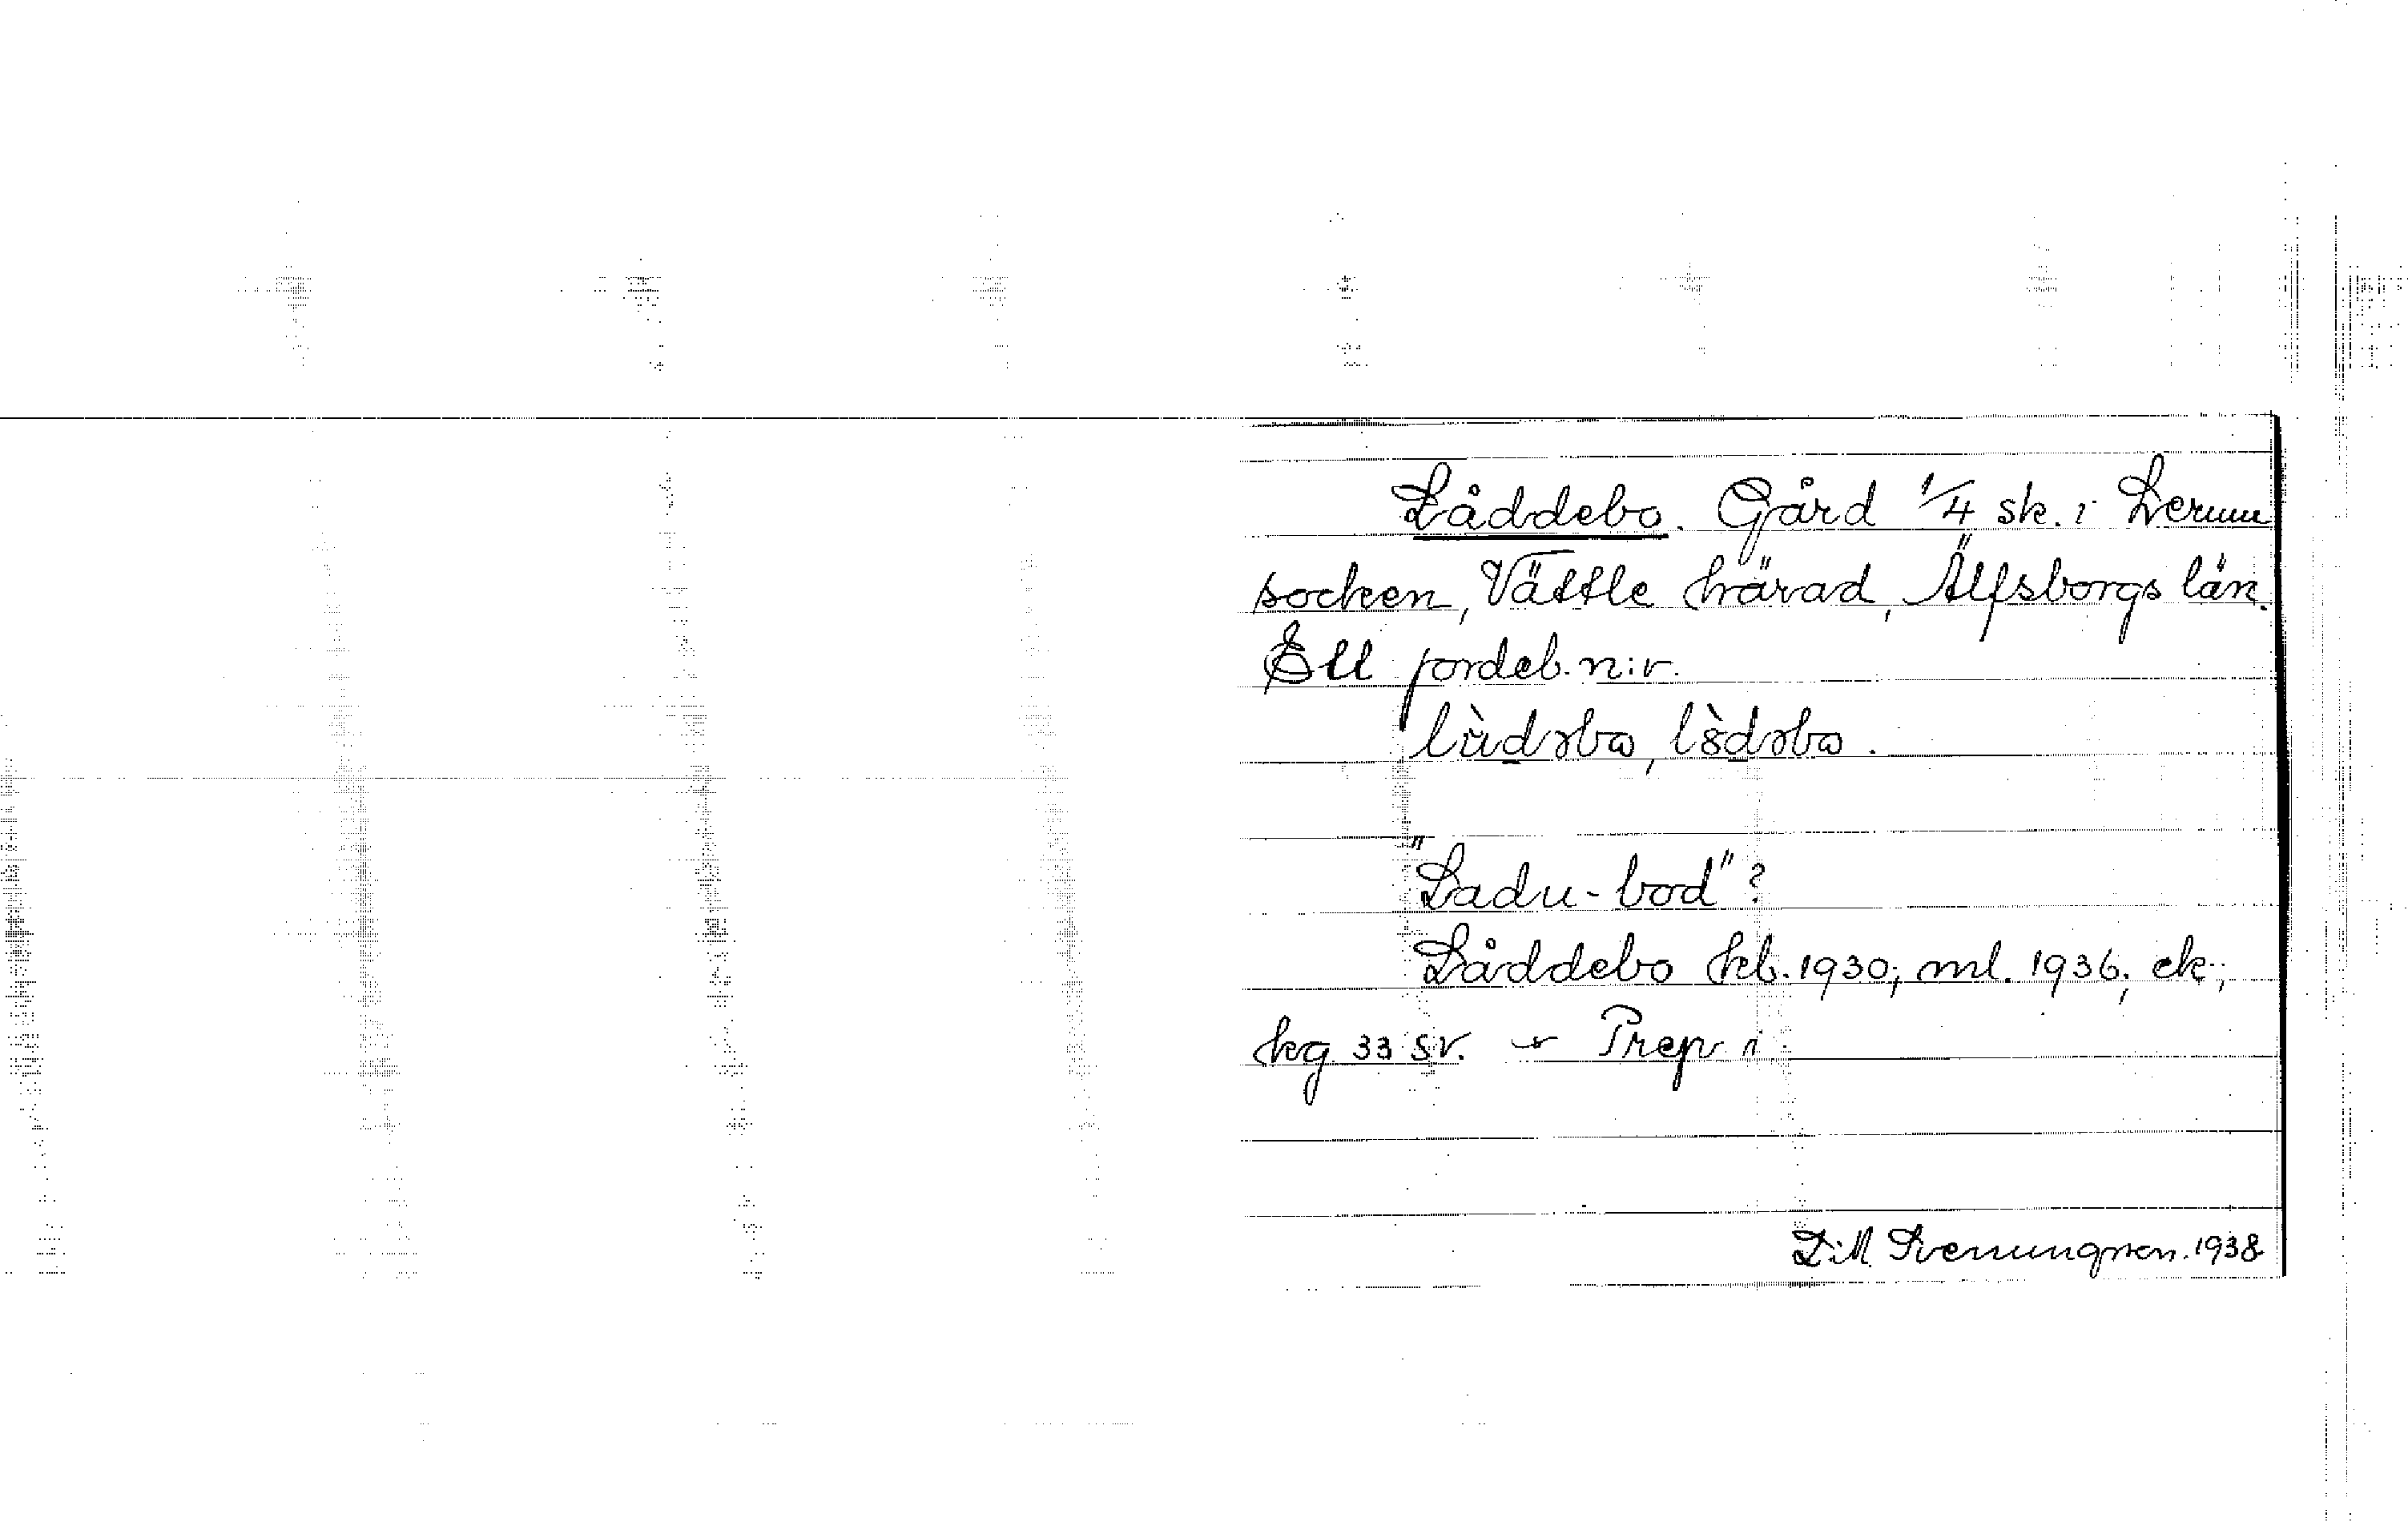 Låddebo. Gård 1/4 sk. i Lerum
socken, Vättle härad, Älfsborgs län.
Ett jordeb. n:r.
"Ladu-bod"?
Låddebo kb. 1930; ml. 1936; ek;
kg 33 sv. Prep i
M. Svenungsson. 1938